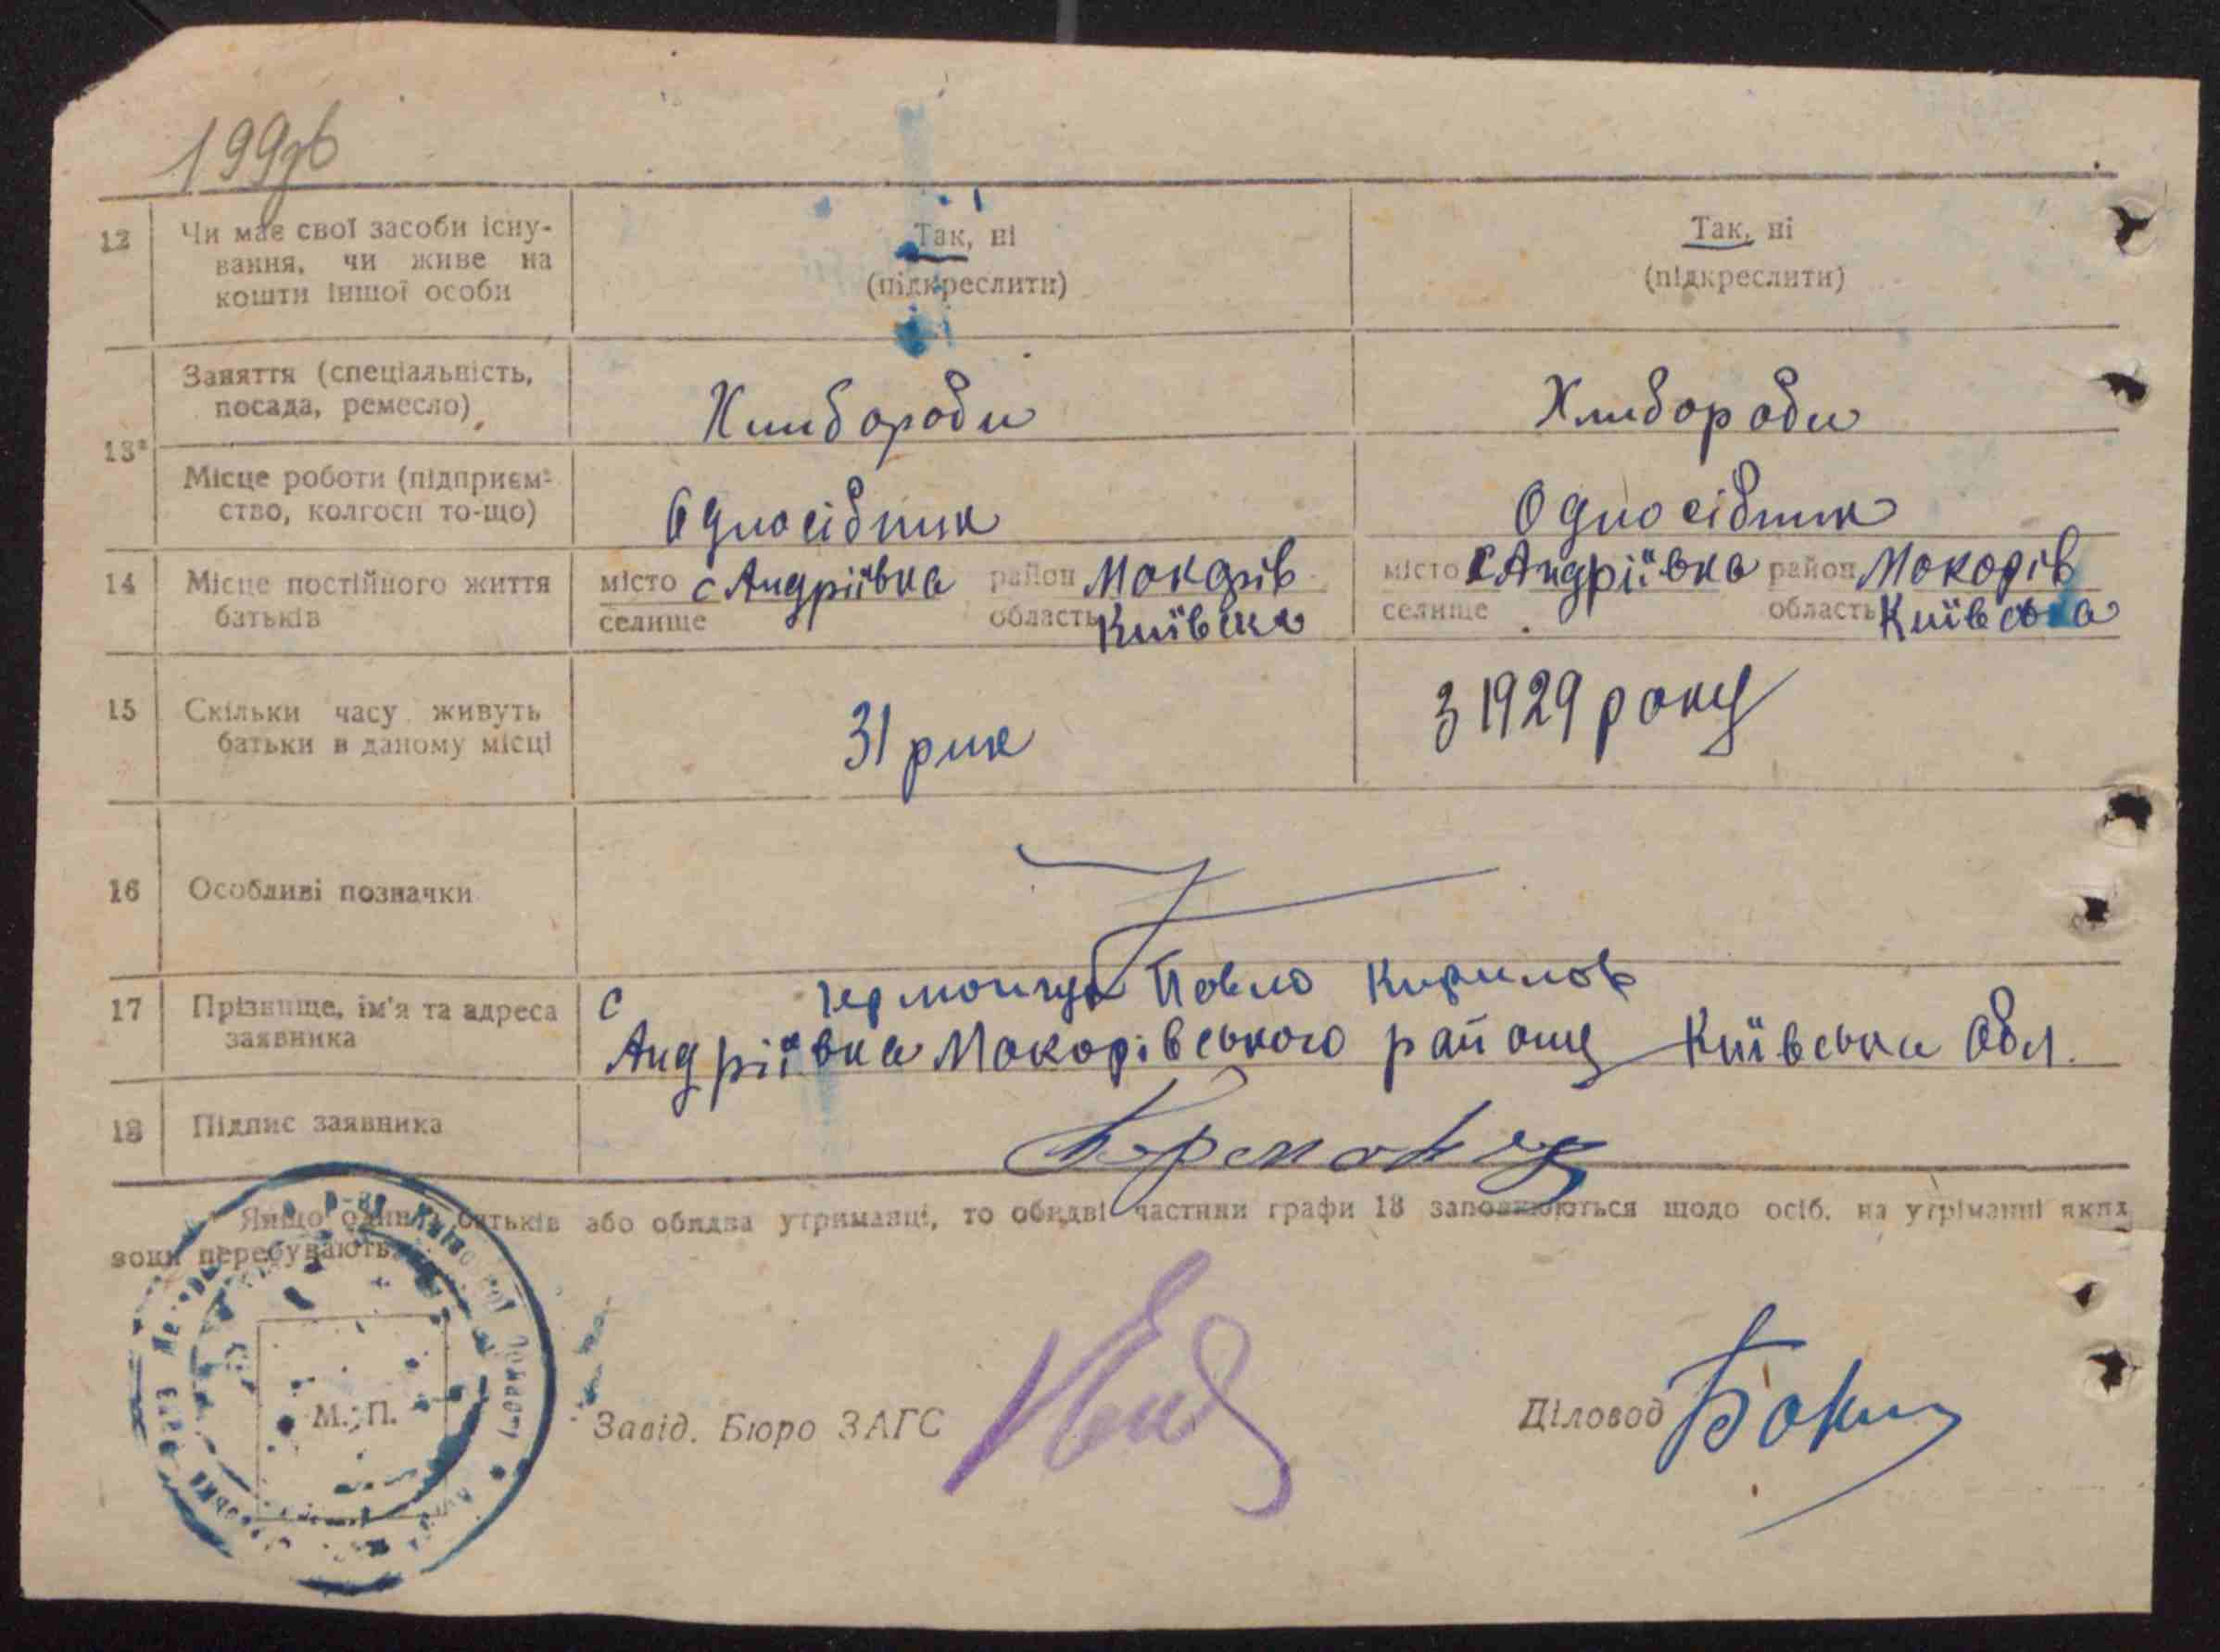 199зв
12 Чи має свої засоби існу- Так, ні Так, ні
вання, чи живе на (підкреслити) (підкреслити)
кошти іншої особи
Заняття (спеціальність, Хлиборобн Хлиборобн
посада, ремесло)
13*
Місце роботи (підприєм- Односібник Односібник
ство, колгосп то-що)
14 Місце постійного життя місто с Андріївка район Макарів місто с Андріївка район Макорів
батьків селище область Київська селище область Київська
15 Скільки часу живуть 31 рик З 1929 року
батьки в даному місці
16 Особливі позначки
17 Прізвище, ім'я та адреса с Павло Кирилов
заявника Андріївка Мокорівського району Київська Обл.
18 Підпис заявника
Якщо один з батьків або обидва утриманці, то обидві частини графи 18 заповнюються щодо осіб, на утріманні яких
вони перебувають.
М. П.
Завід. Бюро ЗАГС Діловод